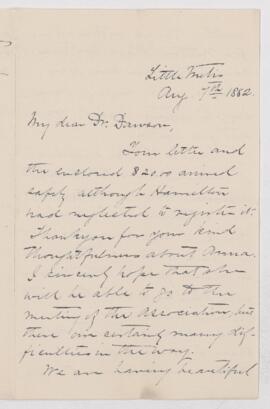 Little Metis
Aug. 7th 1882.
My dear Dr. Dawson,
Your letter and
the enclosed $20.00 arrived
safely although Hamilton
had neglected to register it.
Thank you for your kind
thoughtfulness about Anna.
I sincerely hope that she
will be able to go to the
meeting of the Association, but
there are certainly many dif-
ficulties in the way.
We are having beautiful